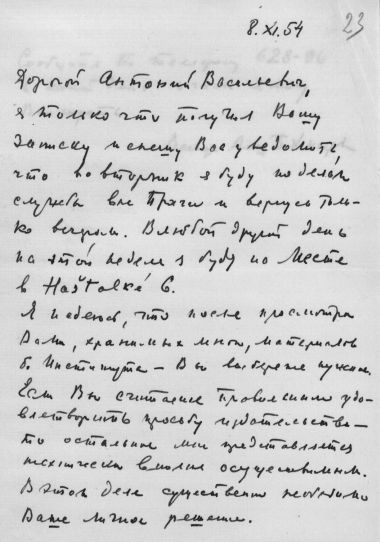 8.XI.54
23
Дорогой Антоний Васильевич,
я только что получил Вашу
записку и спешу Вас уведомить,
что во вторник я буду по делам
службы вне Праги и вернусь толь-
ко вечером. В любой другой день
на этой неделе я буду на месте
в Haštalké 6.
Я надеюсь, что после просмотра
Вами, хранимых мною, материалов
б. Института – Вы выберете нужное.
Если Вы считаете правильным удо-
влетворить просьбу издательства –
то остальное мне представляется
технически вполне осуществимым.
В этом деле существенно необходимо
Ваше личное решение.